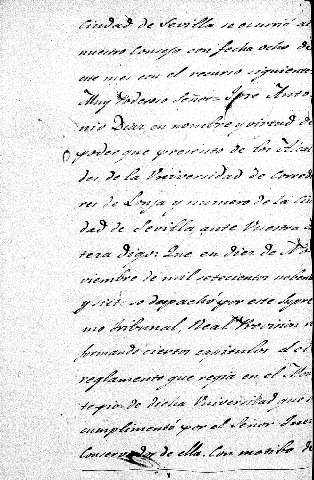 Ciudad de Sevilla se ocurrió al
nuestro Consejo con fecha ocho de
este mes con el recurso siguiente
Muy Poderoso Señor = Jpre Anto
nio Diaz en nombre y virtud de
poder que presento de los Alcal
des de la Universidad de Corredo
res de Lonja y numero de la Ciu
dad de Sevilla ante Vuestra Al
teza digo: Que en diez de No
viembre de mil setecientos noben
y siete se despachó por este Supre
mo tribunal, Real Provision re
formando ciertos capitulos del
reglamento que regia en el Mon
te pio de dicha Universidad que
cumplimentó por el Señor Juez
Conservador de ella. Con motibo de